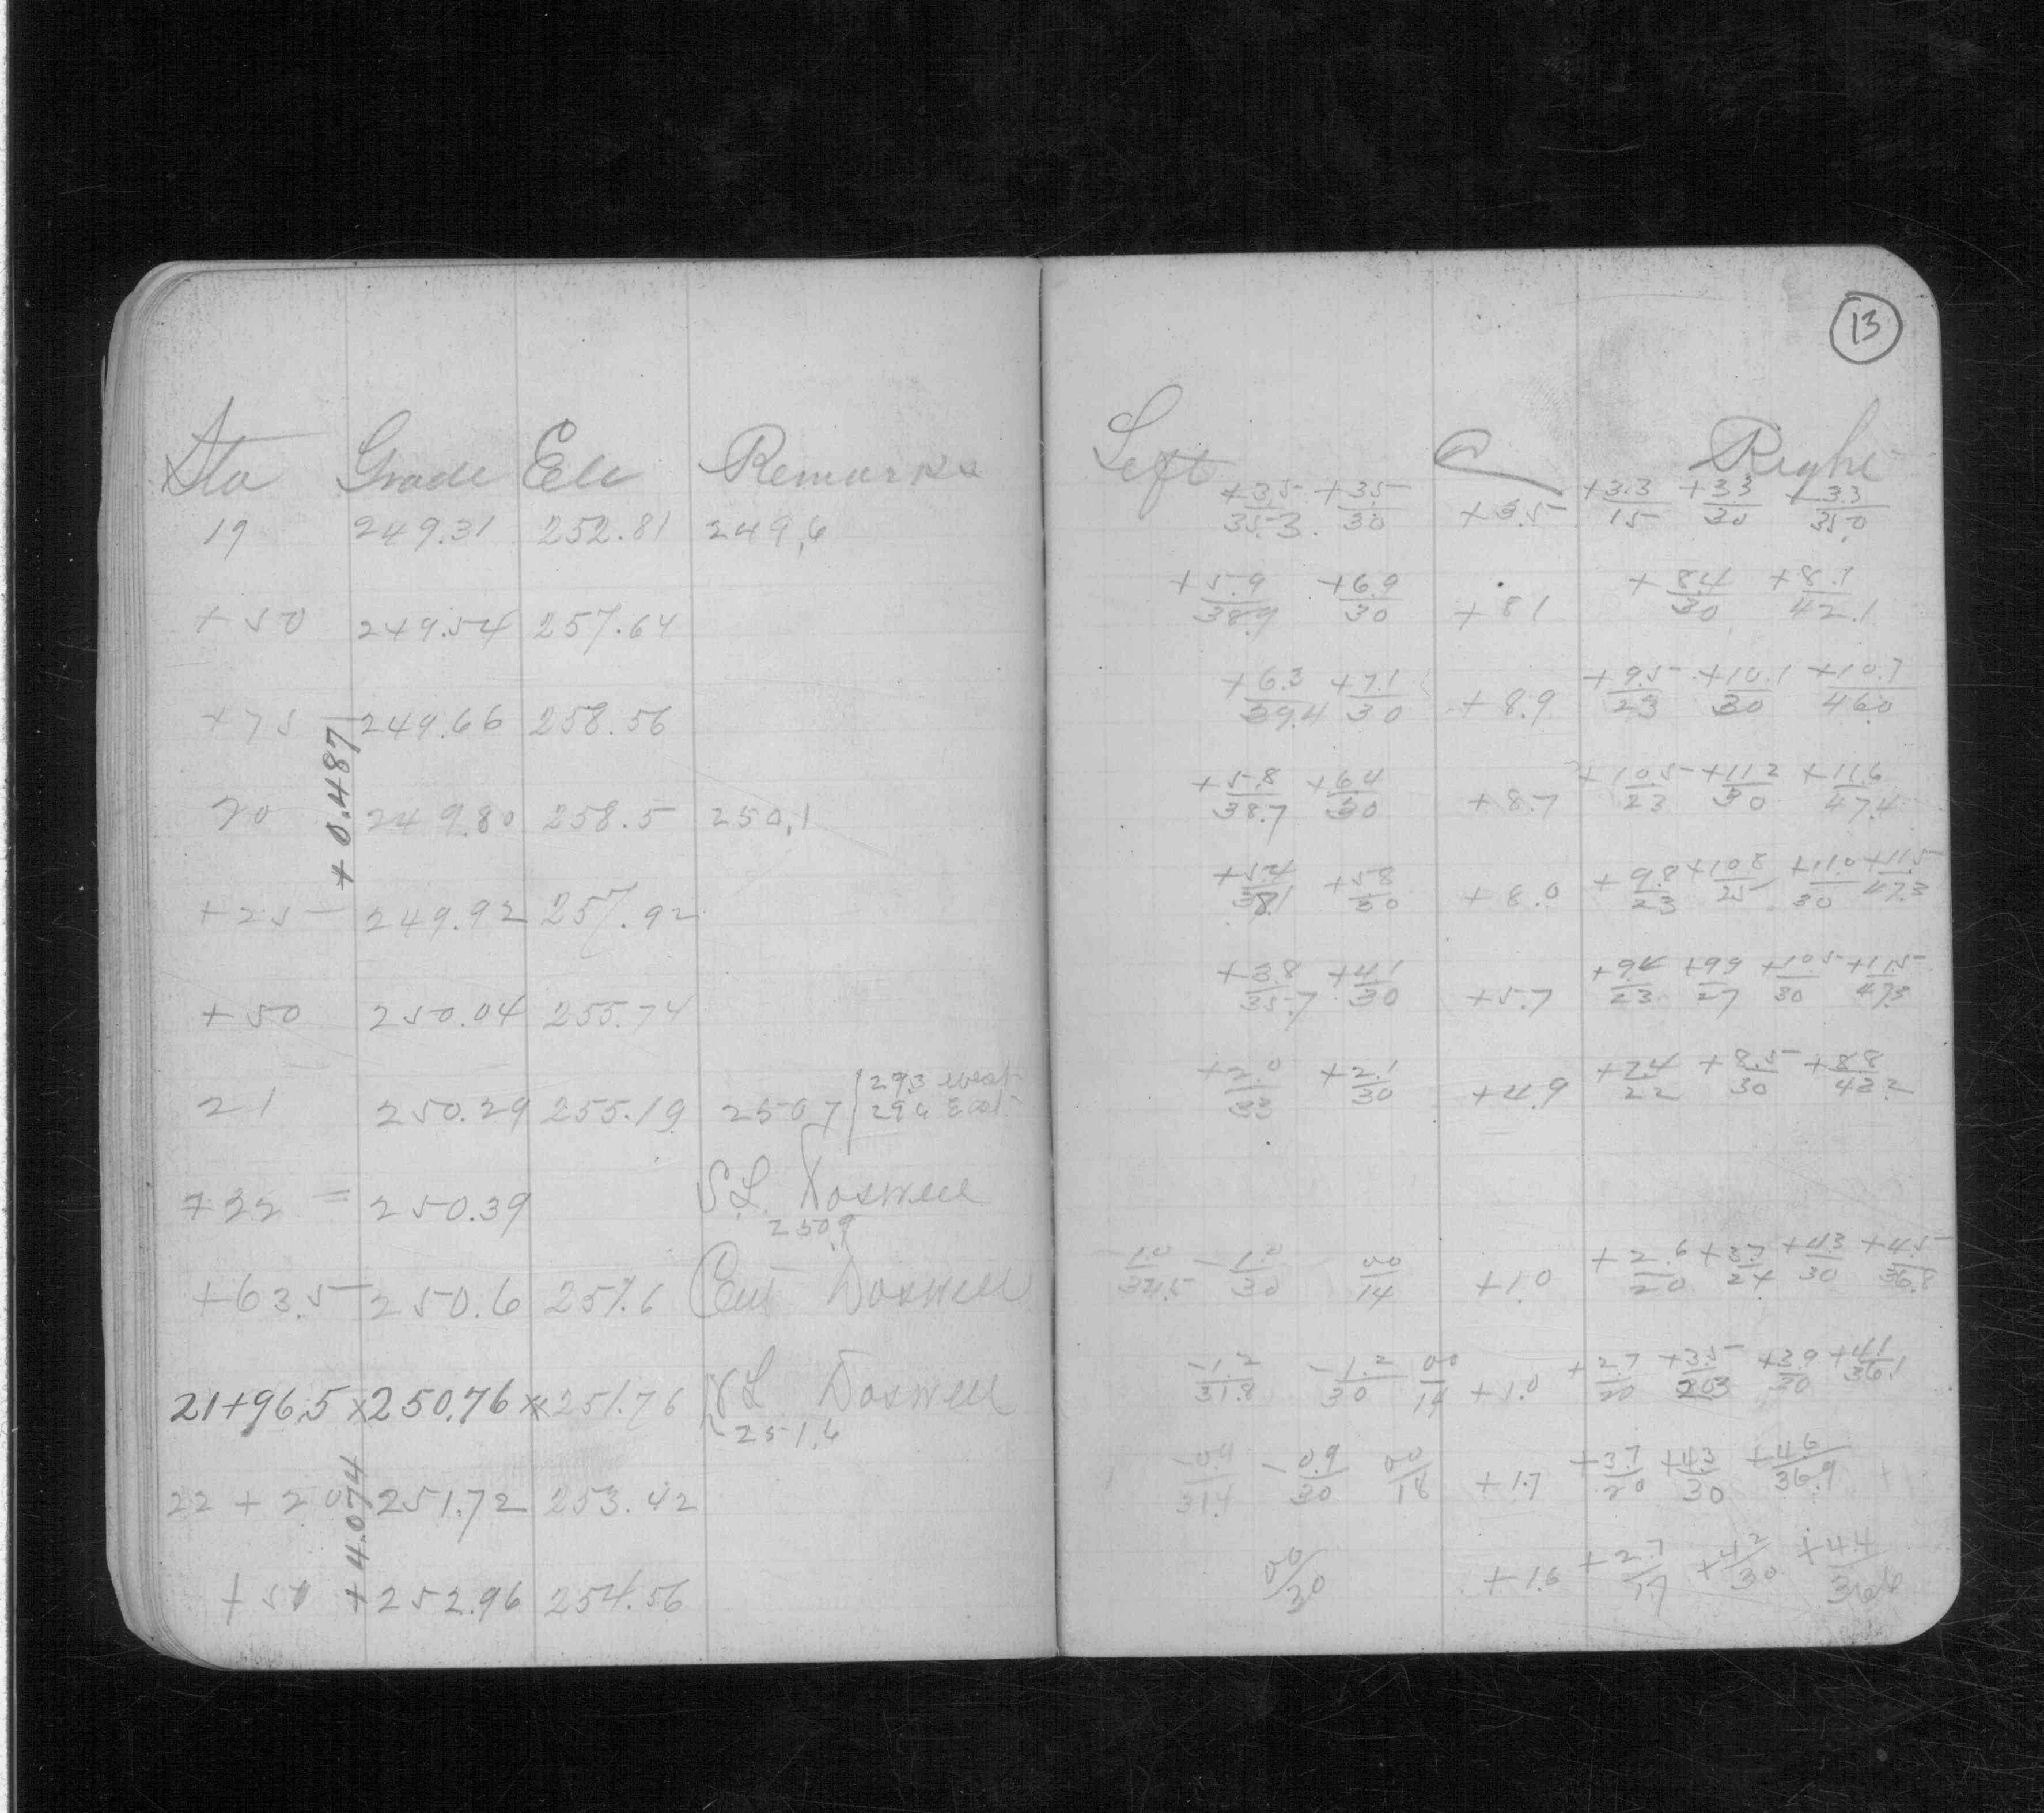 13
Sta Grade Ele Remarks
19 249.31 252.81 249.6
+50 249.54 257.64
+75 249.66 258.56
+0.487
20 249.80 258.5 250.1
+25 249.92 257.92
+50 250.04 255.74
21 250.29 255.19 250.7 29.3 west
29.6 East
+22 = 250.39 S.L. Doswell
250.9
+63.5 250.6 251.6 Cent Doswell
21+96.5 x 250.76 x 251.76 N L Doswell
251.6
22+20 251.72 253.42
+4.074
+50 252.96 254.56
Left C Right
+3.5/35.3 +3.5/30 +3.5 +3.3/15 +3.3/30 +3.3/35.0
+5.9/38.9 +6.9/30 +8.1 +8.4/30 +8.1/42.1
+6.3/39.4 +7.1/30 +8.9 +9.5/23 +10.1/30 +10.7/46.0
+5.8/38.7 +6.4/30 +8.7 +10.5/23 +11.2/30 +11.6/47.4
+5.4/38.1 +5.8/30 +8.0 +9.8/23 +10.8/25 +11.0/30 +11.5/47.3
+3.8/35.7 +4.1/30 +5.7 +9.4/23 +9.9/27 +10.5/30 +11.5/47.3
+2.0/33 +2.1/30 +4.9 +7.4/22 +8.5/30 +8.8/43.2
-1.0/31.5 -1.0/30 00/14 +1.0 +2.6/20 +3.7/24 +4.3/30 +4.5/36.8
-1.2/31.8 -1.2/30 00/14 +1.0 +2.7/20 +3.5/20.3 +3.9/30 +4.1/36.1
-0.9/31.4 -0.9/30 00/18 +1.7 +3.7/20 +4.3/30 +4.6/36.9
00/30 +1.6 +2.7/17 +4.2/30 +4.4/36.6